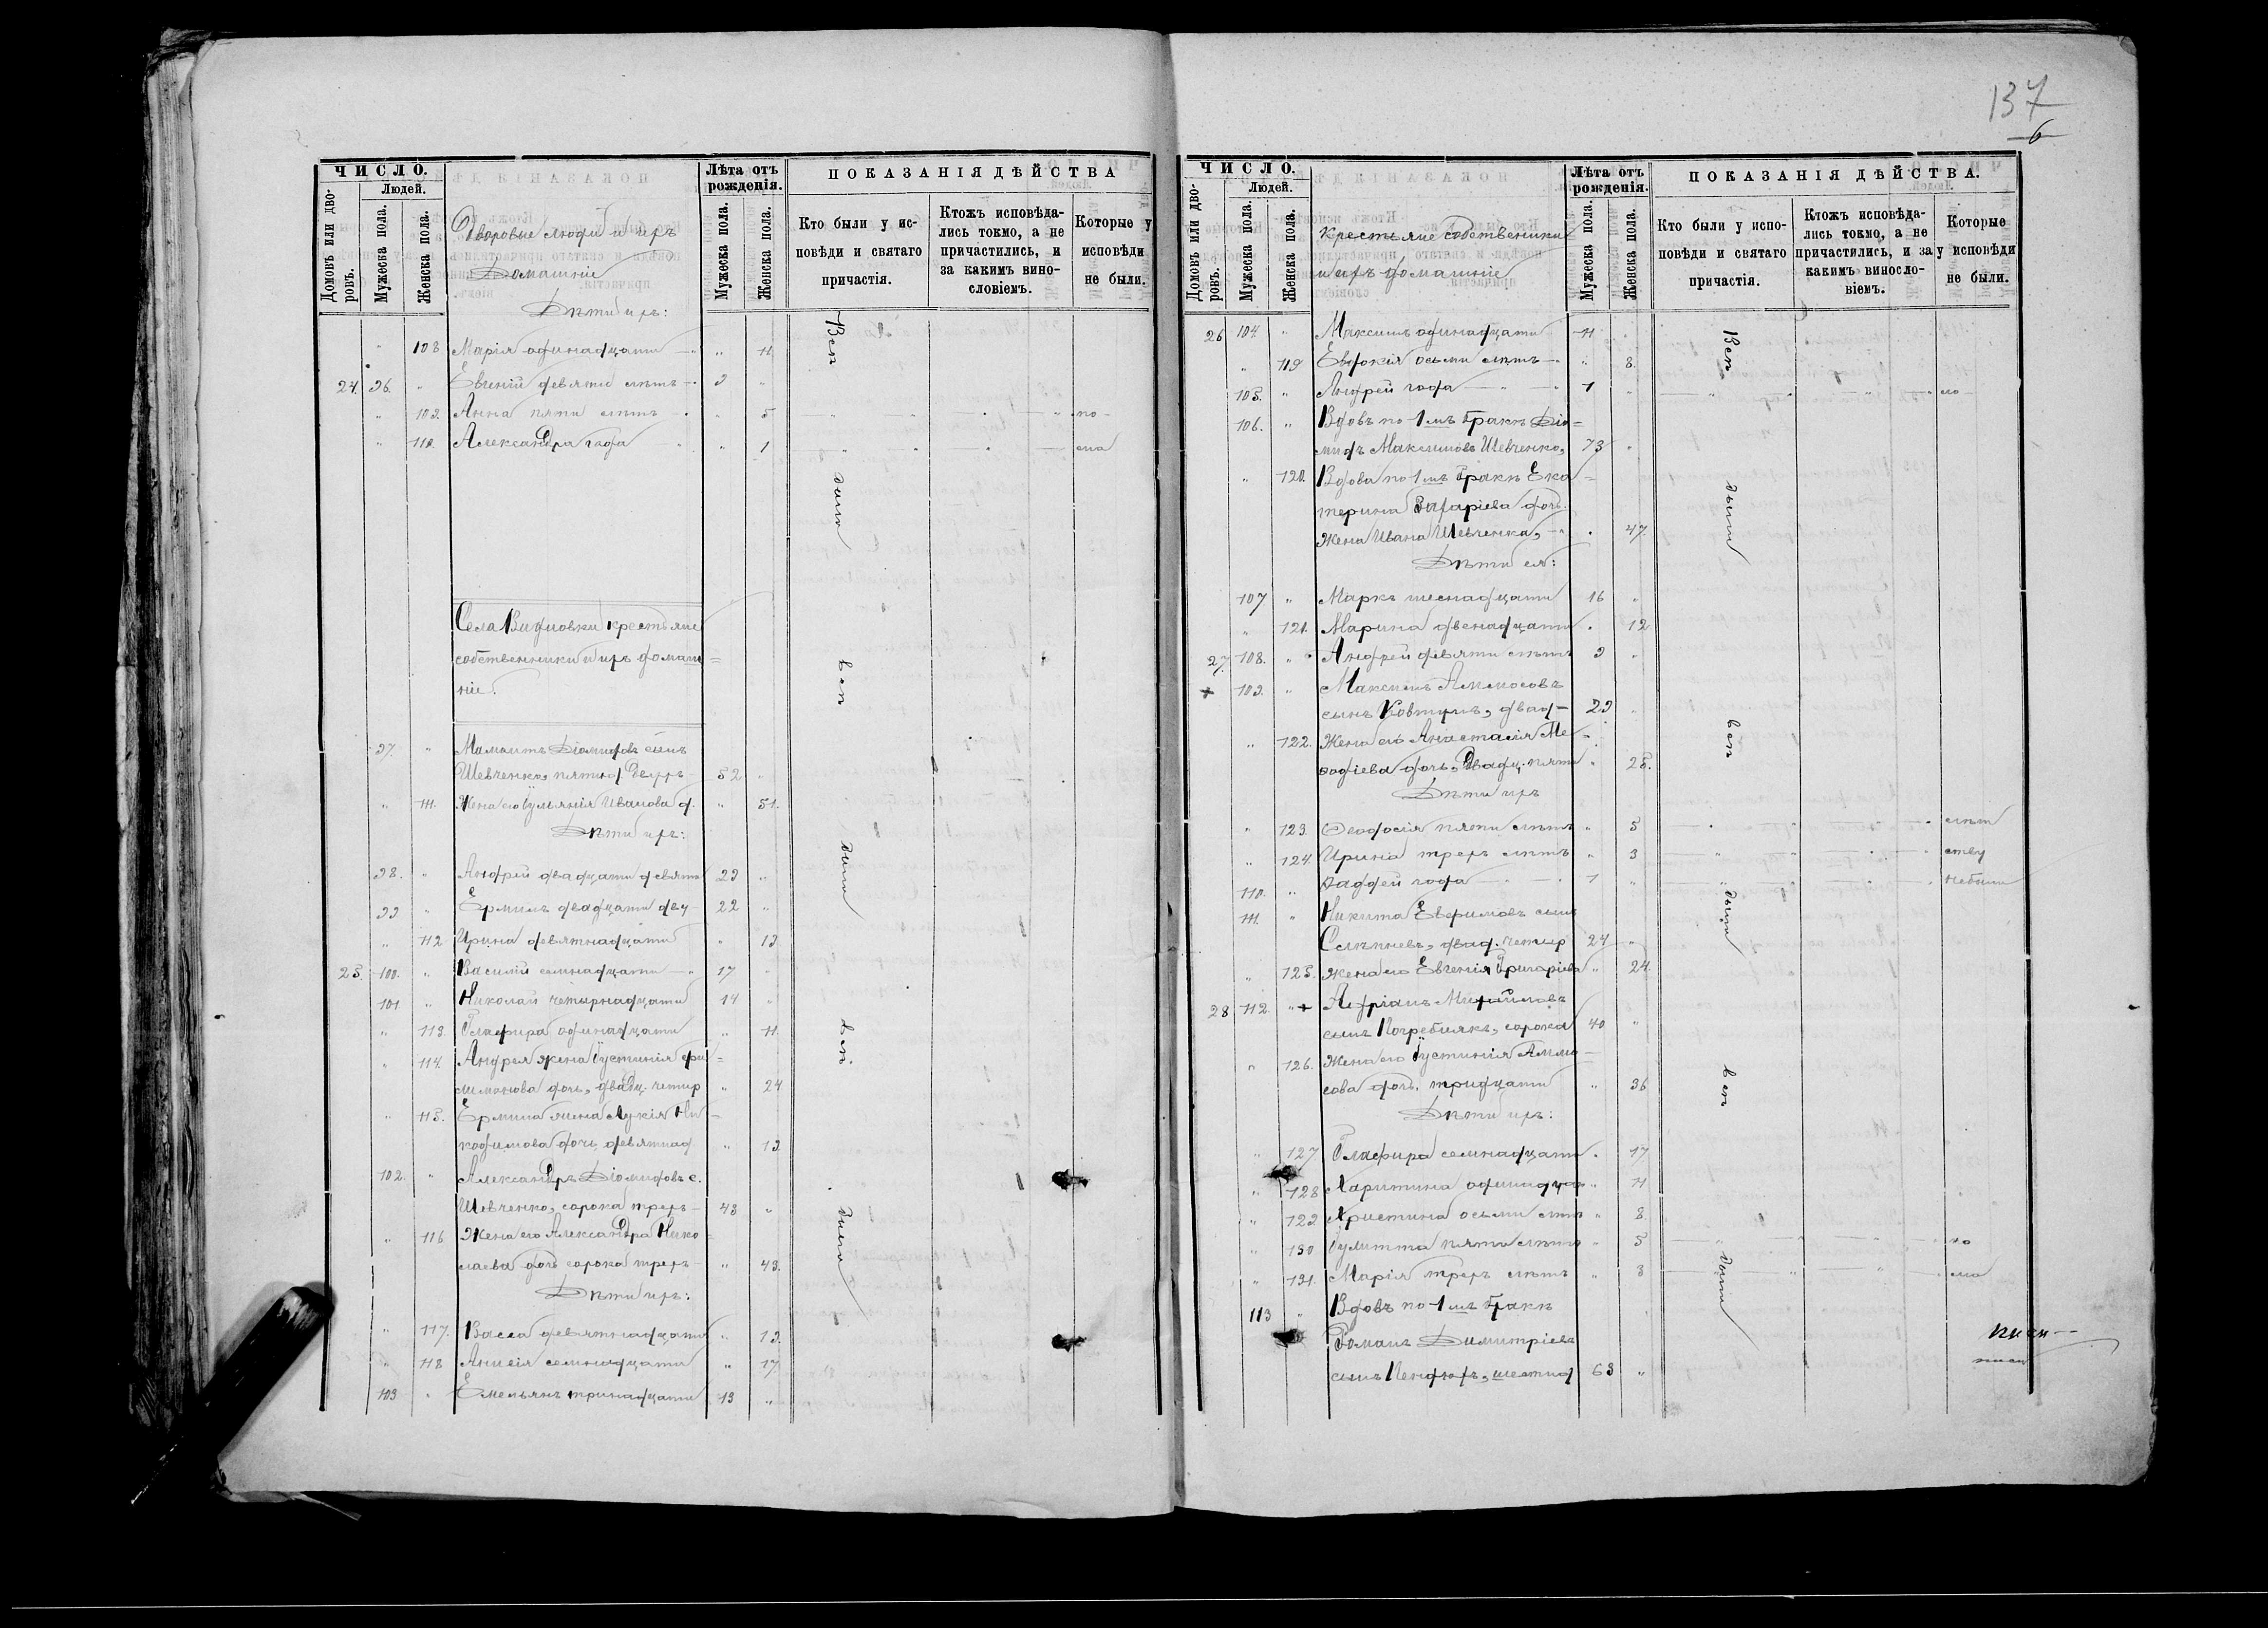 137
6
ЧИСЛО.
Людей.
Домовъ или дворовъ.
Мужеска пола.
Женска пола.
Дворовые люди и ихъ
Домашніе
Дѣти ихъ:
Лѣта отъ рожденія.
Мужеска пола.
Женска пола.
ПОКАЗАНІЯ ДѢЙСТВА
Кто были у исповѣди и святаго причастія.
Ктожъ исповѣдались токмо, а не причастились, и за какимъ винословіемъ.
Которые у исповѣди не были.
108 Марія одинадцати " 11
24. 96. " Евгеній девяти лѣтъ 9 "
" 109. Анна пяти лѣтъ " 5 по-
" 110. Александра года " 1 ма
Села Видновки крестьяне
собственники и ихъ домаш=
ніе.
97. " Мамантъ Діомидовъ сынъ
Шевченко, пятнд. двухъ 52 "
" 111. Жена его Іульянія Иванова д. " 51.
Дѣти ихъ:
98. " Андрей двадцати девяти 29 "
99 " Ермилъ двадцати дву- 22 "
" 112 Ирина девятнадцати " 19
25. 100. " Василій семнадцати 17 -
101 " Николай четырнадцати 14 "
" 113. Глафира одинадцати " 11.
" 114. Андрея жена Іустинія Фи=
лимонова дочь, двадц. четыр " 24
" 115. Ермила жена Лукія Ни=
кодимова дочь, девятнад " 19
102. " Александръ Діомидовъ с.
Шевченко, сорока трехъ 43 "
" 116 Жена его Александра Нико=
лаева дочь сорока трехъ " 43.
Дѣти ихъ:
" 117. Васса девятнадцати " 19.
" 118 Анисія семнадцати " 17
103 " Емельянъ тринадцати 13 "
Всѣ
были
всѣ
были
всѣ
были
ЧИСЛО.
Людей.
Домовъ или дворовъ.
Мужеска пола.
Женска пола.
Крестьяне собственники
и ихъ домашніе
Лѣта отъ рожденія.
Мужеска пола.
Женска пола.
ПОКАЗАНІЯ ДѢЙСТВА.
Кто были у исповѣди и святаго причастія.
Ктожъ исповѣдались токмо, а не причастились, и за какимъ винословіемъ.
Которые у исповѣди не были.
26 104. " Максимъ одинадцати 11
" 119 Евдокія осьми лѣтъ " 8
105. " Андрей года 1 " мо
106. " Вдовъ по 1мъ бракѣ Діо=
мидъ Максимовъ Шевченко, 73 "
" 120. Вдова по 1мъ бракѣ Ека=
терина Захаріева дочь
Жена Ивана Шевченка, 47.
Дѣти ея:
107 " Маркъ шеснадцати 16 "
" 121. Марина двенадцати . 12
27. 108. " Андрей девяти лѣтъ 9 "
+ 109. " Максимъ Аммосовъ
сынъ Ковтунъ, двад- 29 "
" 122. Жена его Анастасія Ме=
фодіева дочь, двадц. пяти " 25.
Дѣти ихъ
" 123. Феодосія пяти лѣтъ " 5 лѣт
" 124. Ирина трехъ лѣтъ " 3 ству
110. " Фаддей года 1 " небыли
111. " Никита Евфимовъ сынъ
двад. четыр 24 "
" 125. Жена его Евгенія Григоріева " 24.
28 112. " + Адріанъ Михайловъ
сынъ Погребнякъ, сорока 40 "
" 126. Жена его Іустинія Аммо=
сова дочь. тридцати " 36
Дѣти ихъ:
" 127 Глафира семнадцати . 17
" 128 Харитина одинадца " 11
" 129 Христина осьми лѣтъ " 8.
" 130 Іулитта пяти лѣтъ " 5 по
" 131. Марія трехъ лѣтъ " 3 ма
113 " Вдовъ по 1мъ бракѣ
Романъ Димитріевъ
63 "
Всѣ
были
всѣ
были
всѣ
были